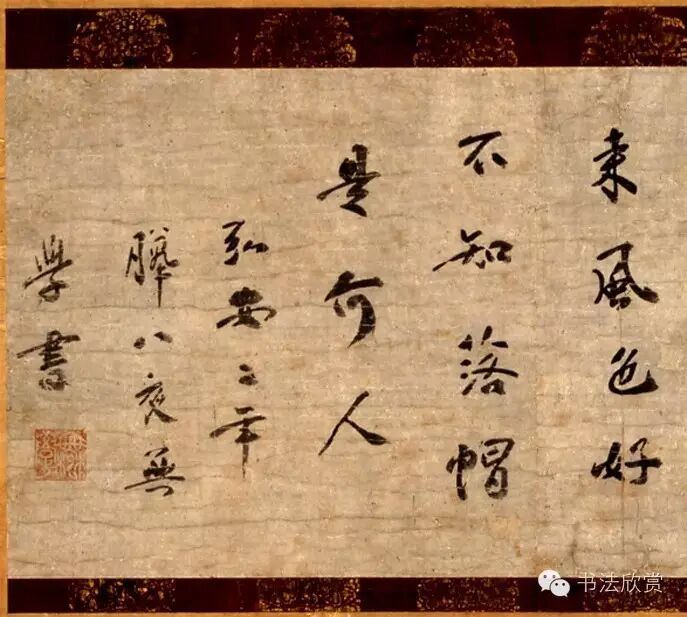 来風色好
不知落帽
是何人
弘安二年
臘八夜無
學書
书法欣赏